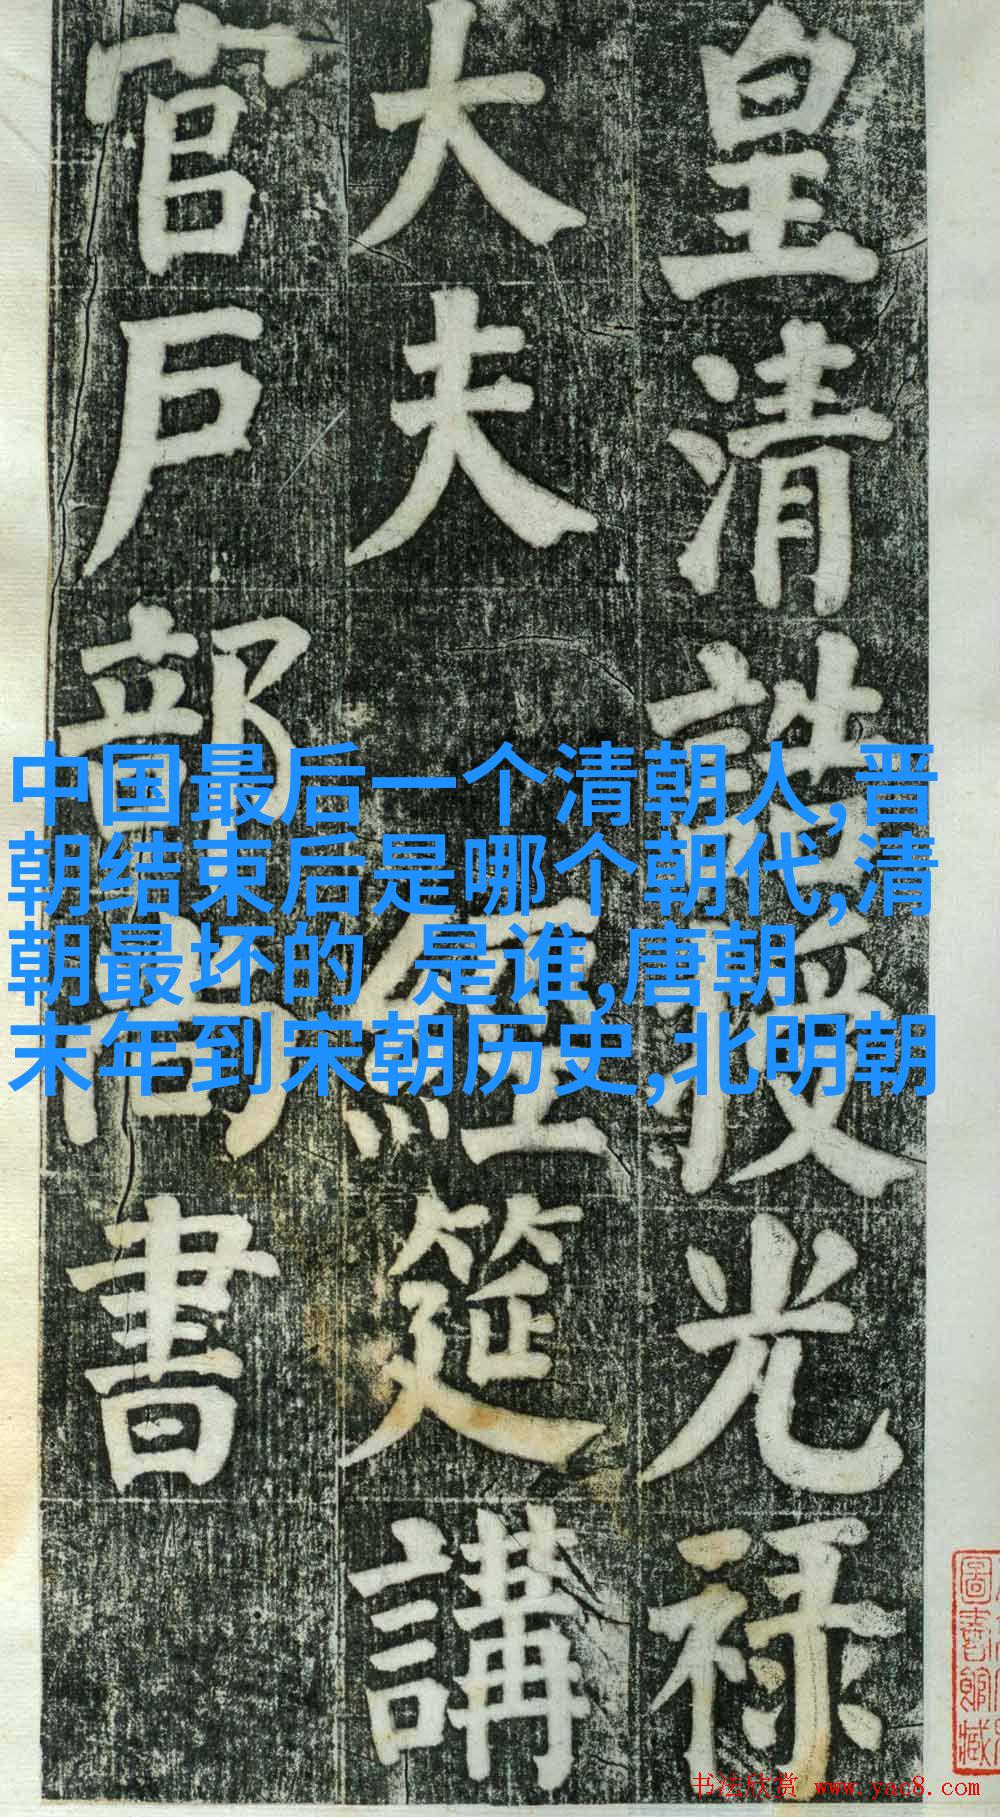 皇清誥授光祿
大夫 經筵講
官戶部尚書
中国最后一个清朝人,晋
朝结束后是哪个朝代,清
朝最坏的 是谁,唐朝
末年到宋朝历史,北明朝
圖書館藏
书法欣赏 www.yac8.com